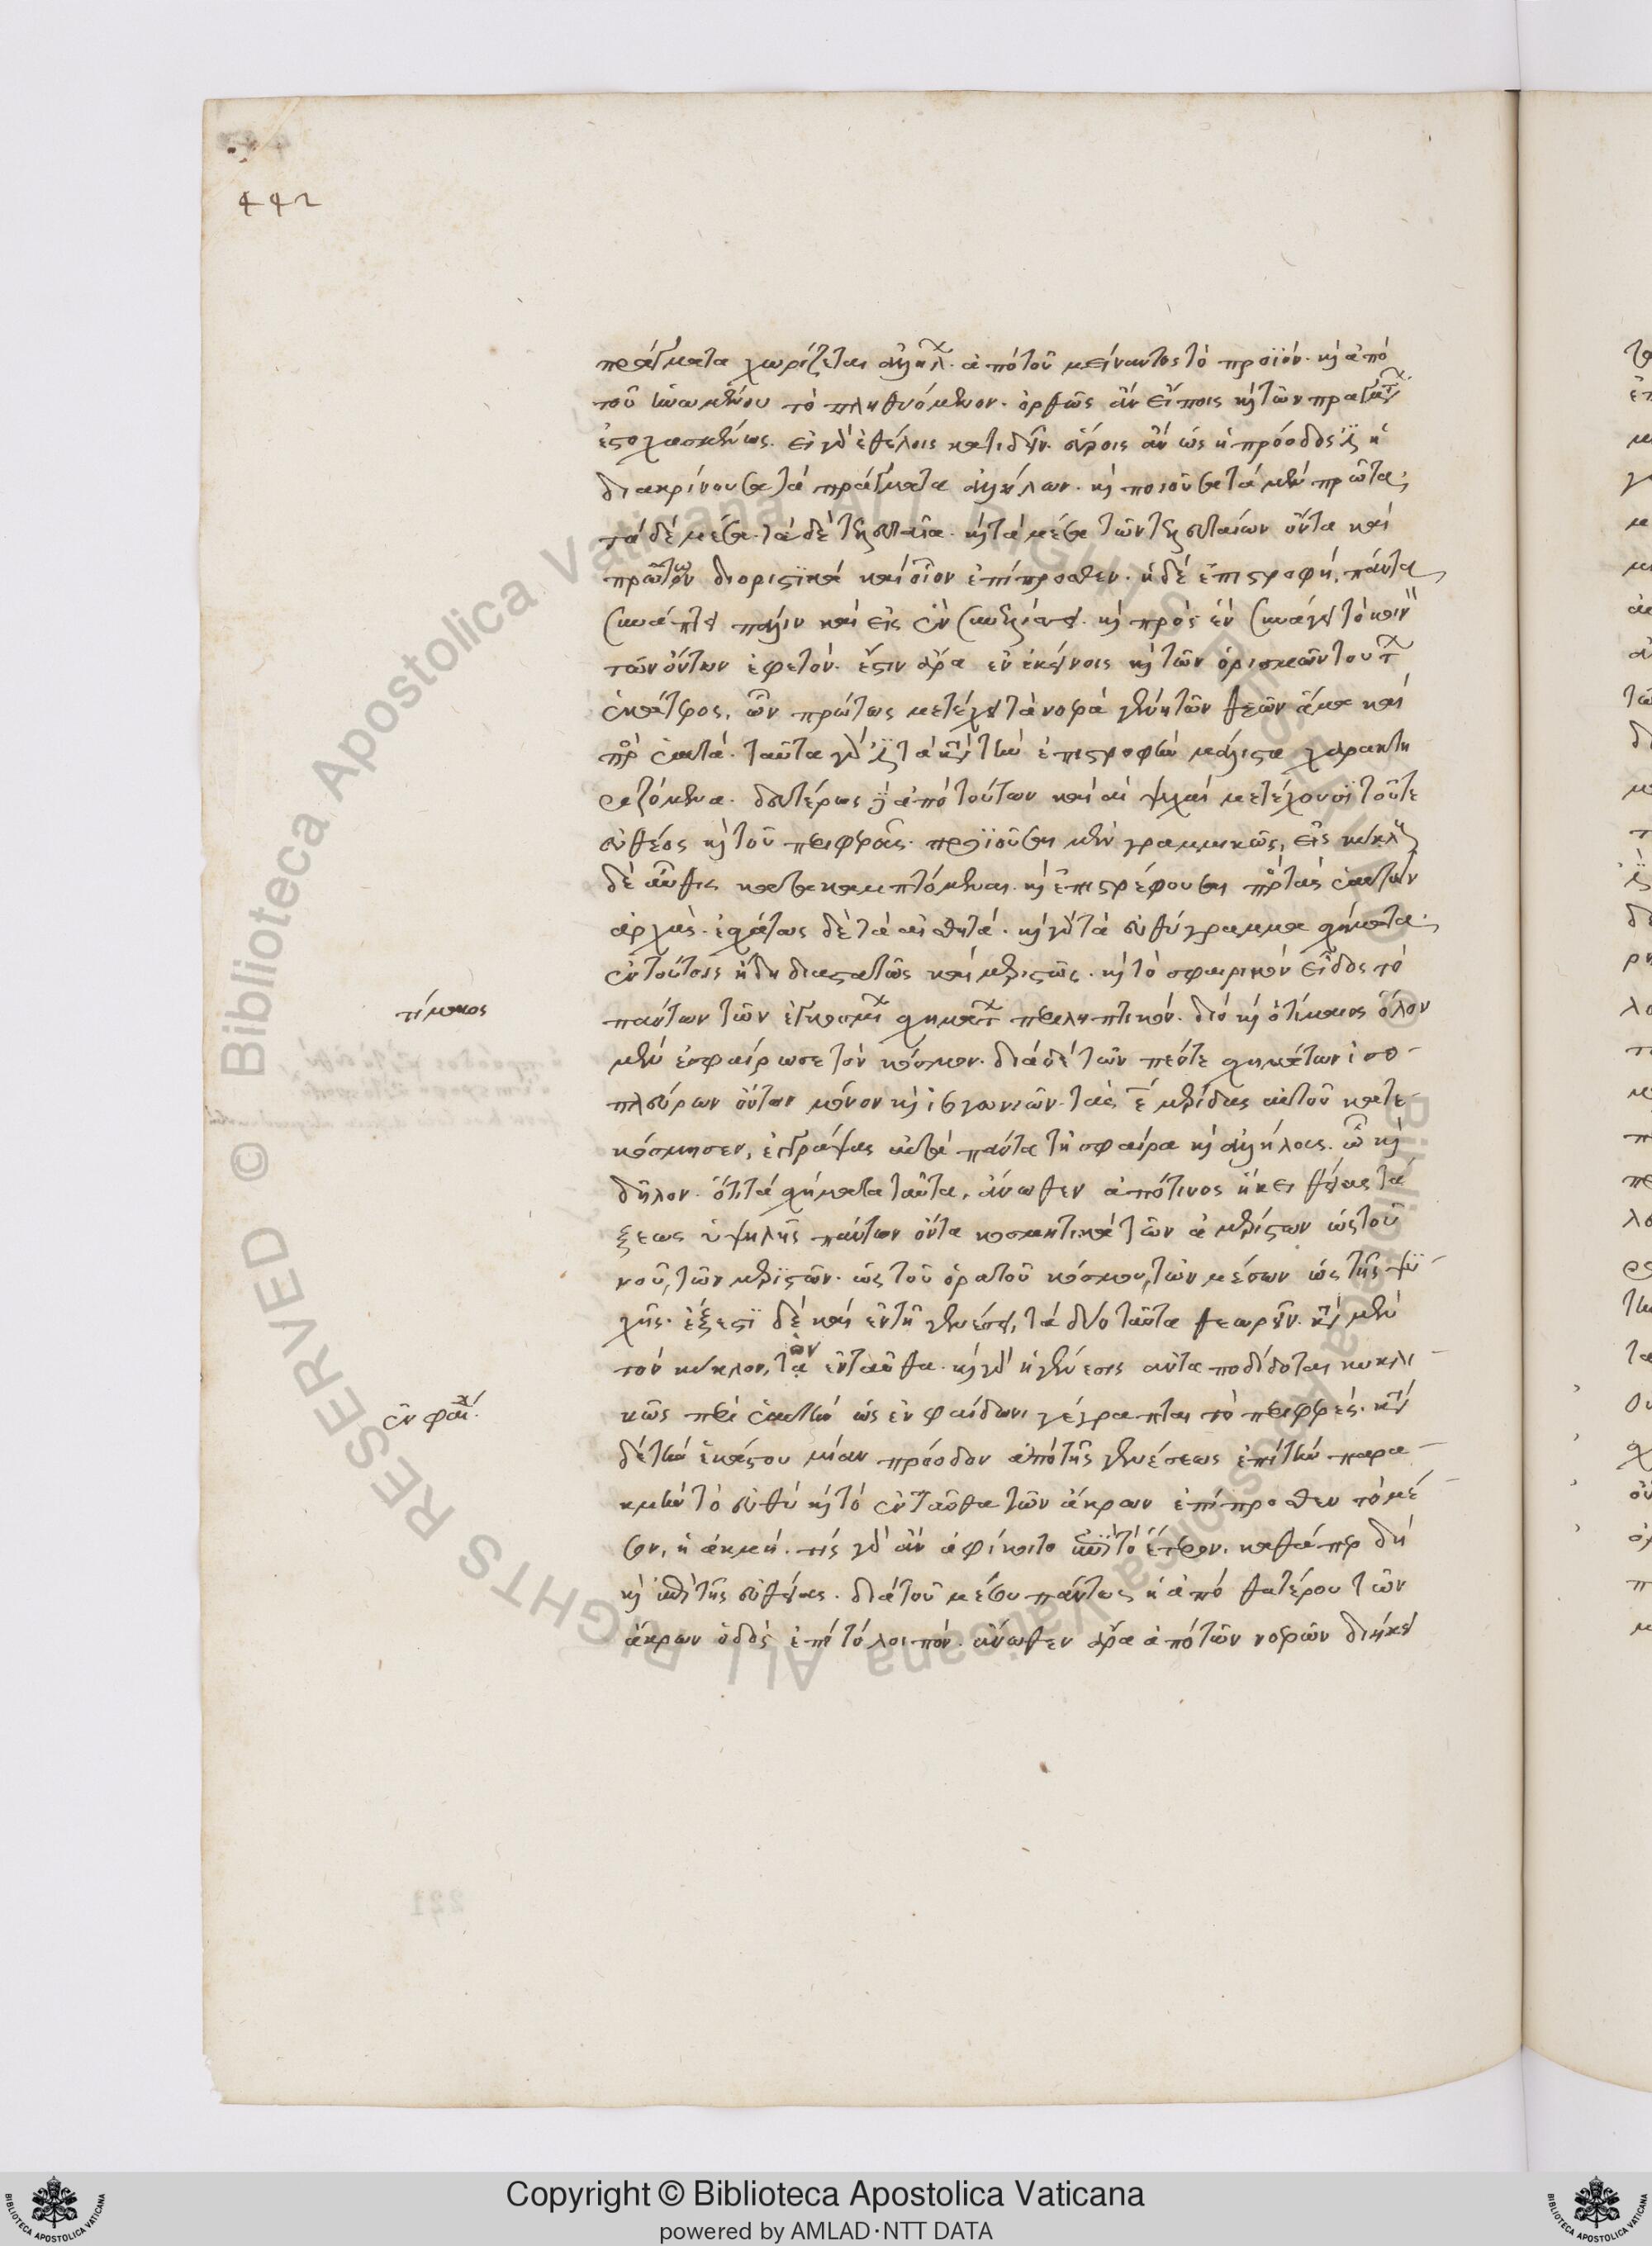 442
πράγματα χωρίζεται ἀλλήλ. ἀπὸ τοῦ μείναντος τὸ προϊόν. κỳ ἀπὸ
τοῦ ἡνωμένου τὸ πληθυόμενον. ὀρθῶς ἂν εἴποις κỳ τῶν πραγμάτ
ἐστοχασμένως. εἰ γὰρ ἐθέλοις κατιδεῖν. εὕροις ἂν ὡς ἡ πρόοδός ἐστιν ἡ
διακρίνουσα τὰ πράγματα ἀλλήλων. κỳ ποιοῦσα τὰ μὲν πρῶτα,
τὰ δὲ μέσα. τὰ δὲ τελευταῖα. κỳ τὰ μέσα τῶν τελευταίων ὄντα καὶ
πρώτων διοριστικὰ καὶ οἷον ἐπίπροσθεν. ἡ δὲ ἐπιστροφή, πάντα
συνάπτει πάλιν καὶ εἰς ἓν συνελίσσει. κỳ πρὸς ἓν συνάγει τὸ κοινὸν
τῶν ὄντων ἐφετόν. ἔστιν ἄρα ἐν ἐκείνοις κỳ τῶν ὁρισμῶν τούτ
ἑκάτερος, ὧν πρώτως μετέχει τὰ νοερὰ γένη τῶν θεῶν ἅμα καὶ
πρὸς ἑαυτά. ταῦτα γάρ ἐστι τὰ κατὰ τὴν ἐπιστροφὴν μάλιστα χαρακτη
ριζόμενα. δευτέρως δὲ ἀπὸ τούτων καὶ αἱ ψυχαὶ μετέχουσι τοῦ τε
εὐθέος κỳ τοῦ περιφεροῦς. προϊοῦσαι μὲν γραμμικῶς, εἰς κύκλους
δὲ αὖθις κατακαμπτόμεναι. κỳ ἐπιστρέφουσαι πρὸς τὰς ἑαυτῶν
ἀρχάς. ἐσχάτως δὲ τὰ αἰσθητά. κỳ γὰρ τὰ εὐθύγραμμα σχήματα.
ἐν τούτοις ἤδη διαστατῶς καὶ μεριστῶς. κỳ τὸ σφαιρικὸν εἶδος τὸ
πάντων τῶν ἐγκοσμί σχημάτ περιληπτικόν. διὸ κỳ ὁ τίμαιος ὅλον
τίμαιος
μὲν ἐσφαίρωσε τὸν κόσμον. διὰ δὲ τῶν πέντε σχημάτων ἰσο-
πλεύρων ὄντων μόνον κỳ ἰσογωνιῶν. τὰς ε μερίδας αὐτοῦ κατε-
κόσμησεν, ἐγγράψας αὐτὰ πάντα τῇ σφαίρα κỳ ἀλλήλοις. ὧ κỳ
δῆλον. ὅτι τὰ σχήματα ταῦτα, ἄνωθεν ἀπό τινος ἥκει θείας τά
ξεως ὑψηλῆς πάντων ὄντα κοσμητικὰ τῶν ἀμερίστων ὡς τοῦ
νοῦ, τῶν μεριστῶν. ὡς τοῦ ὁρατοῦ κόσμου, τῶν μέσων ὡς τῆς ψυ
χῆς. ἔξεστι δὲ καὶ ἐν τῇ γενέσει, τὰ δύο ταῦτα θεωρεῖν. κατὰ μὲν
τὸν κύκλον, τὸν ἐνταῦθα. κỳ γὰρ ἡ γένεσις ἀνταποδίδοται κυκλι-
κῶς περὶ ἑαυτὴν ὡς ἐν φαίδωνι γέγραπται τὸ περιφερές. κατὰ
ἐν φαί.
δὲ τὴν ἑκάστου μίαν πρόοδον ἀπὸ τῆς γενέσεως ἐπὶ τὴν παρα-
κμὴν τὸ εὐθὺ κỳ τὸ ἐνταῦθα τῶν ἄκρων ἐπίπροσθεν τὸ μέ-
σον, ἡ ἀκμή. τίς γὰρ ἂν ἀφίκοιτο ἐπὶ τὸ ἕτερον. καθάπερ δὴ
κỳ ἐπὶ τῆς εὐθείας. διὰ τοῦ μέσου πάντως ἡ ἀπὸ θατέρου τῶν
ἄκρων ὁδὸς ἐπὶ τὸ λοιπόν. ἄνωθεν ἄρα ἀπὸ τῶν νοερῶν διήκει